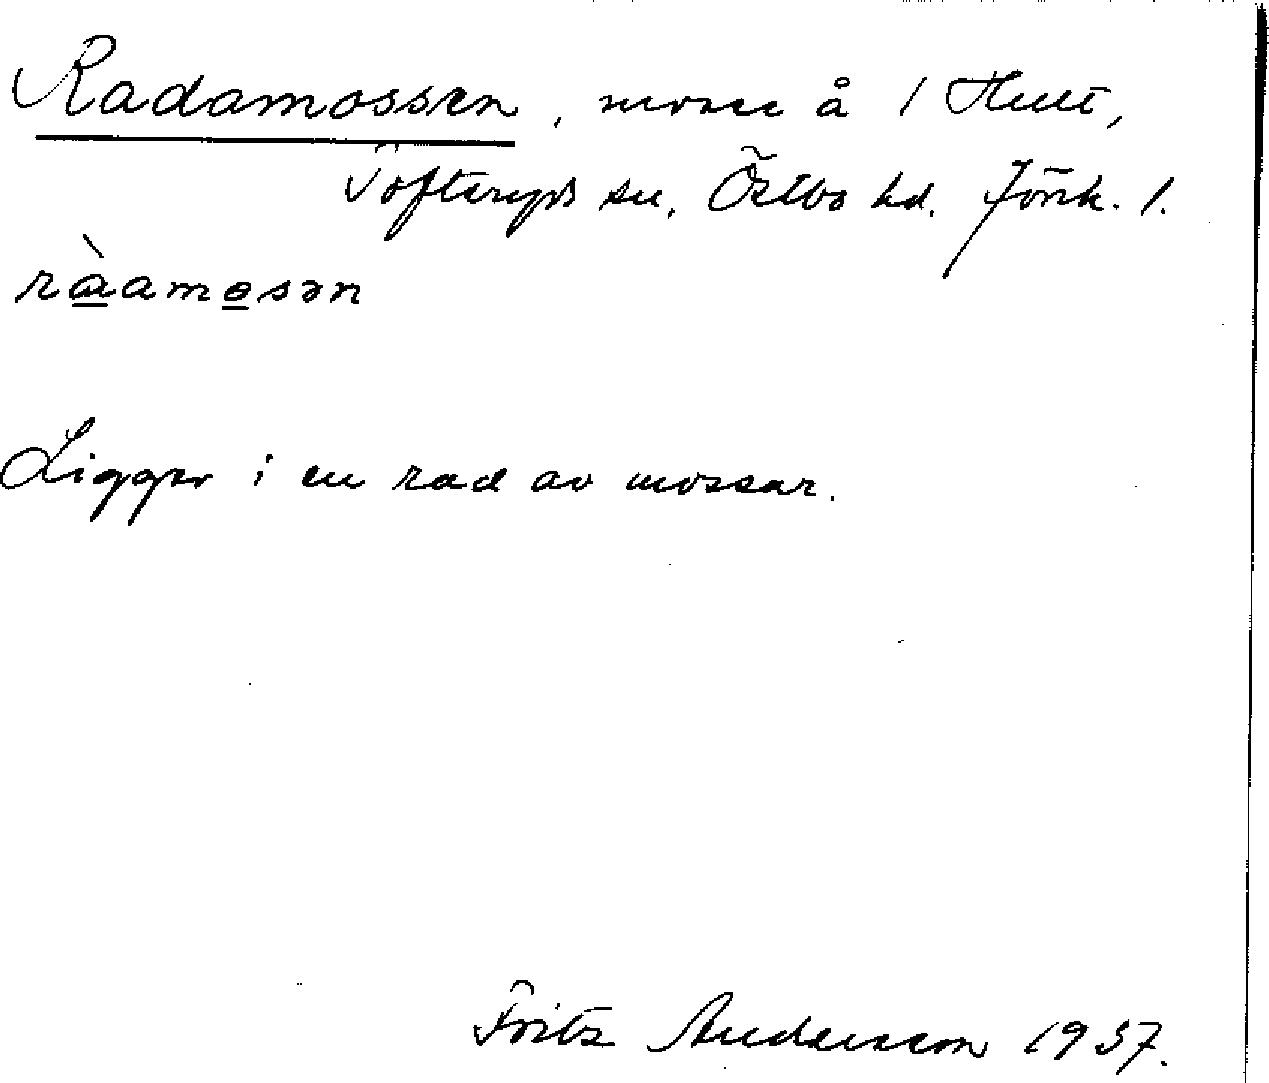 Radamossen, mosse å 1 Hult,
Tofteryds sn, Östbo hd. Jönk. l.
ràamosən
Ligger i en rad av mossar.
Fritz Andersson 1937.